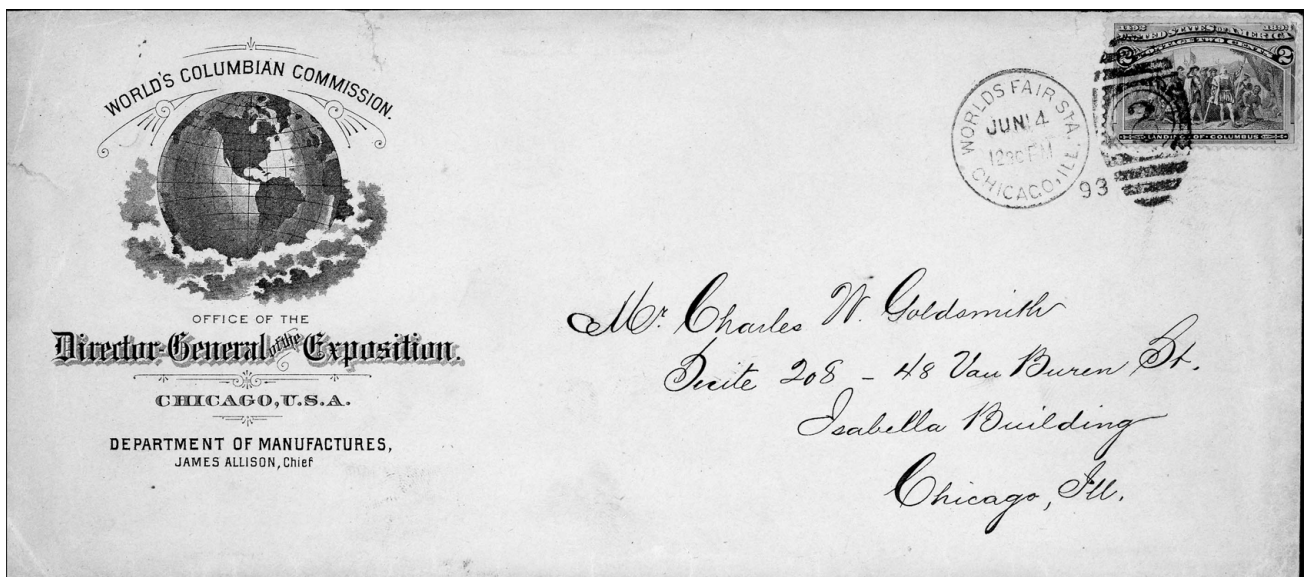 WORLD'S COLUMBIAN COMMISSION.
OFFICE OF THE
Director-General of the Exposition.
CHICAGO, U.S.A.
DEPARTMENT OF MANUFACTURES,
JAMES ALLISON, Chief
WORLDS FAIR STA.
JUN 14
1230 PM
CHICAGO, ILL.
93
2
1492 1892
UNITED STATES OF AMERICA
POSTAGE TWO CENTS
2 2
LANDING OF COLUMBUS
Mr. Charles W. Goldsmith
Suite 208 - 48 Van Buren St.
Isabella Building
Chicago, Ill.